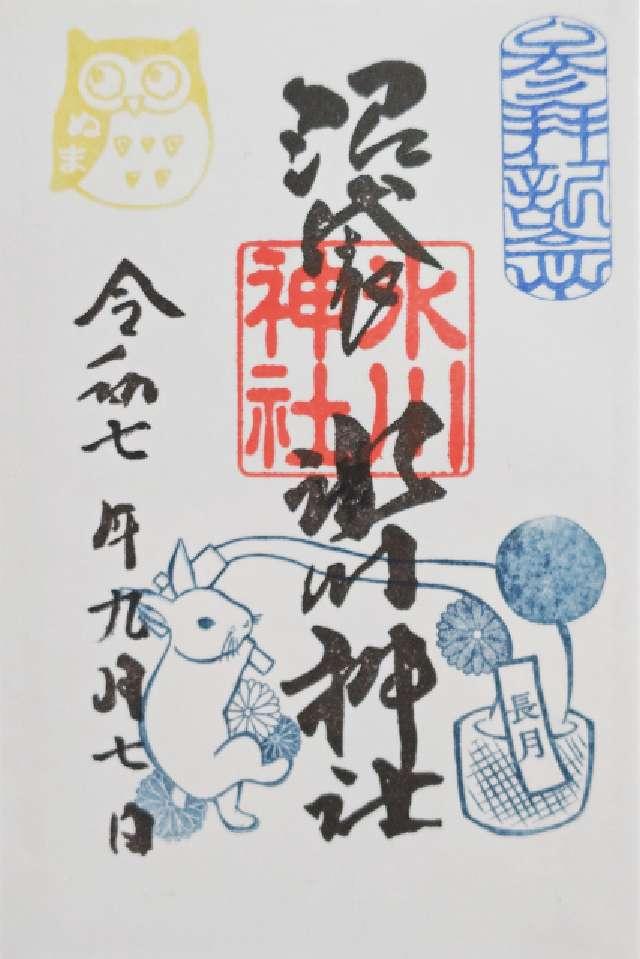 参拝記念
沼袋
氷川神社
氷川
神社
令和七年九月七日
ぬま
長月